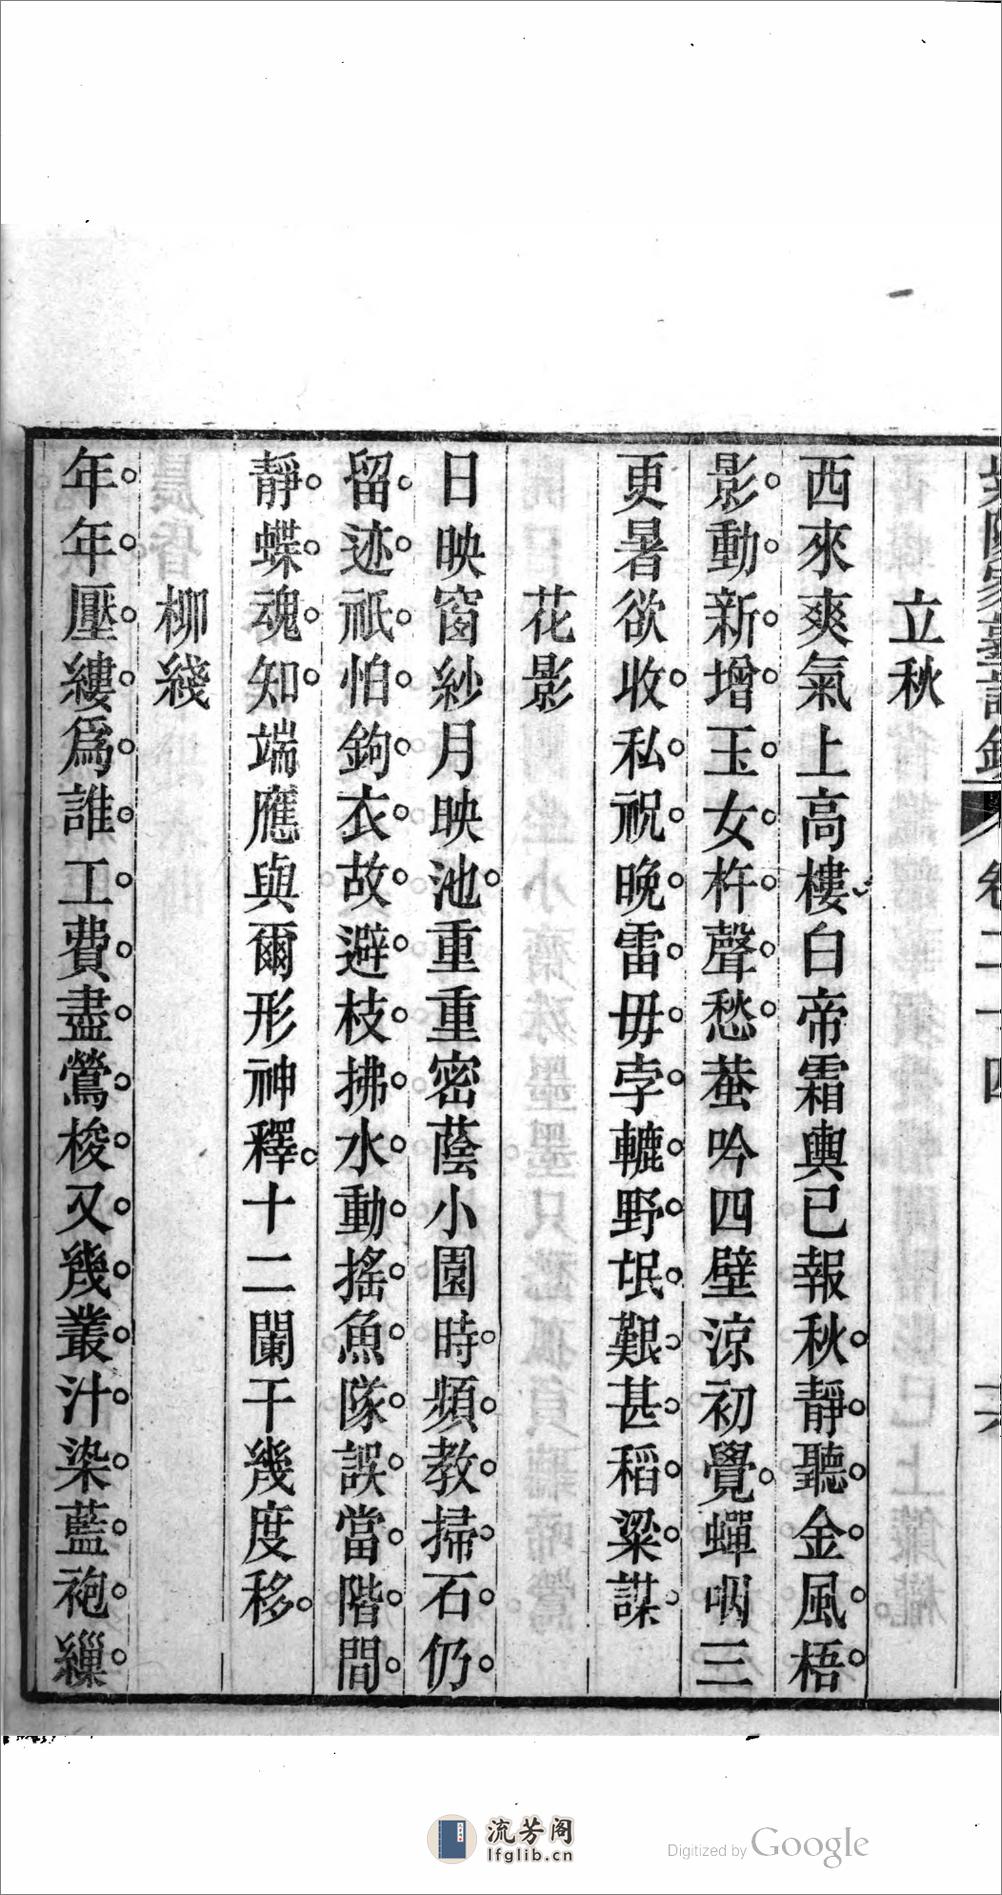 卷二十四
立秋
西來爽氣上高樓白帝霜輿已報秋靜聽金風梧
影動新增玉女杵聲愁蛬吟四壁涼初覺蟬咽三
更暑欲收私祝晚雷毋孛轆野氓艱甚稻粱謀
花影
日映窗紗月映池重重密蔭小園時頻教掃石仍
留迹祇怕鉤衣故避枝拂水動搖魚隊誤當階間
靜蝶魂知端應與爾形神釋十二闌干幾度移
柳綫
年年壓縷爲誰工費盡鶯梭又幾叢汁染藍袍繅
流芳阁
lfglib.cn
Digitized by Google